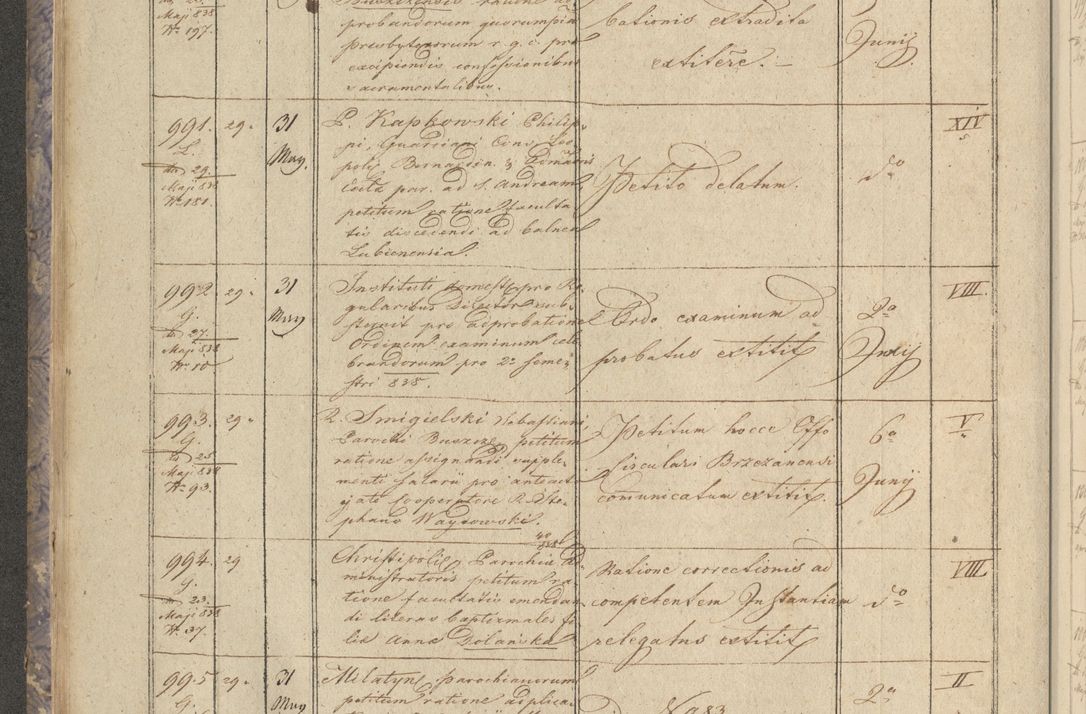 Maji 838
Nr 197.
probandorum quorumpiam
presbyterorum r. g. c. pro
excipiendis confessionibus
sacramentalibus.
bationis extradita
extitere. —
Junij
991. 29.
L.
dto 29.
Maji 838
Nr 181.
31
May.
P. Kapkowski Philip-
pi, Guardiani Conv. Leo-
polis Bernardin. &
par. ad S. Andream
petitum ratione faculta-
tis discedendi ad balnea
Lubienensia.
Petito delatum.
do
XIV
992. 29.
G.
dto 27.
Maji 838
Nr 10
31
May
Instituti domest. pro Re-
gularibus Director sub-
sternit pro adprobatione
Ordinem examinum cele-
brandorum pro 2o seme-
stri 838.
Ordo examinum ad
probatus extitit
2a
Junij
VIII.
993. 29.
G.
dto 25
Maji 838
Nr 93.
R. Smigielski Sebastiani
Parochi petitum
ratione assignandi supple-
menti salarii pro anteact
Cooperatore R. Ste-
phano Waysowski.
Petitum hocce Offo
Circulari Brzezanensi
comunicatum extitit.
6a
Junij
V
994. 29
G.
dto 23.
Maji 838
Nr 37.
40
838
Christipolis Parochiae Ad-
ministratoris petitum ra-
tione facultatis emendan-
di literas baptismales fi-
liae Annae Dolańska
Ratione correctionis ad
competentem Instantiam
relegatus extitit
do
VIII.
995 29.
G.
31
May
Milatyn. parochianorum
petitum ratione adplica-
Nr 983.
2a
II